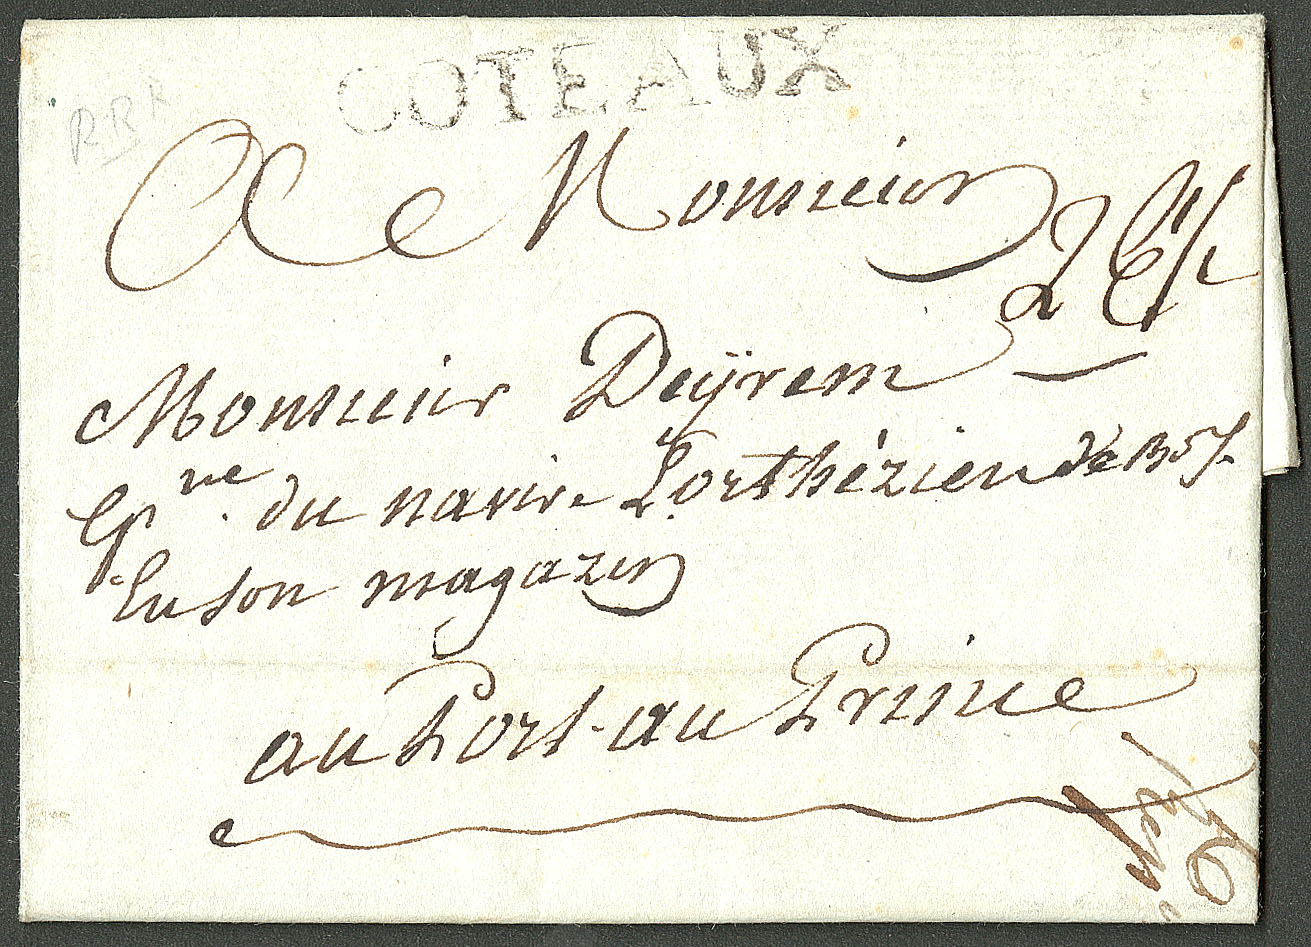 COTEAUX
RRR
A Monsieur
Monsieur Deÿrem
Cpne du navire Lorthézien de Bx
En son magazin
au Port-au Prince